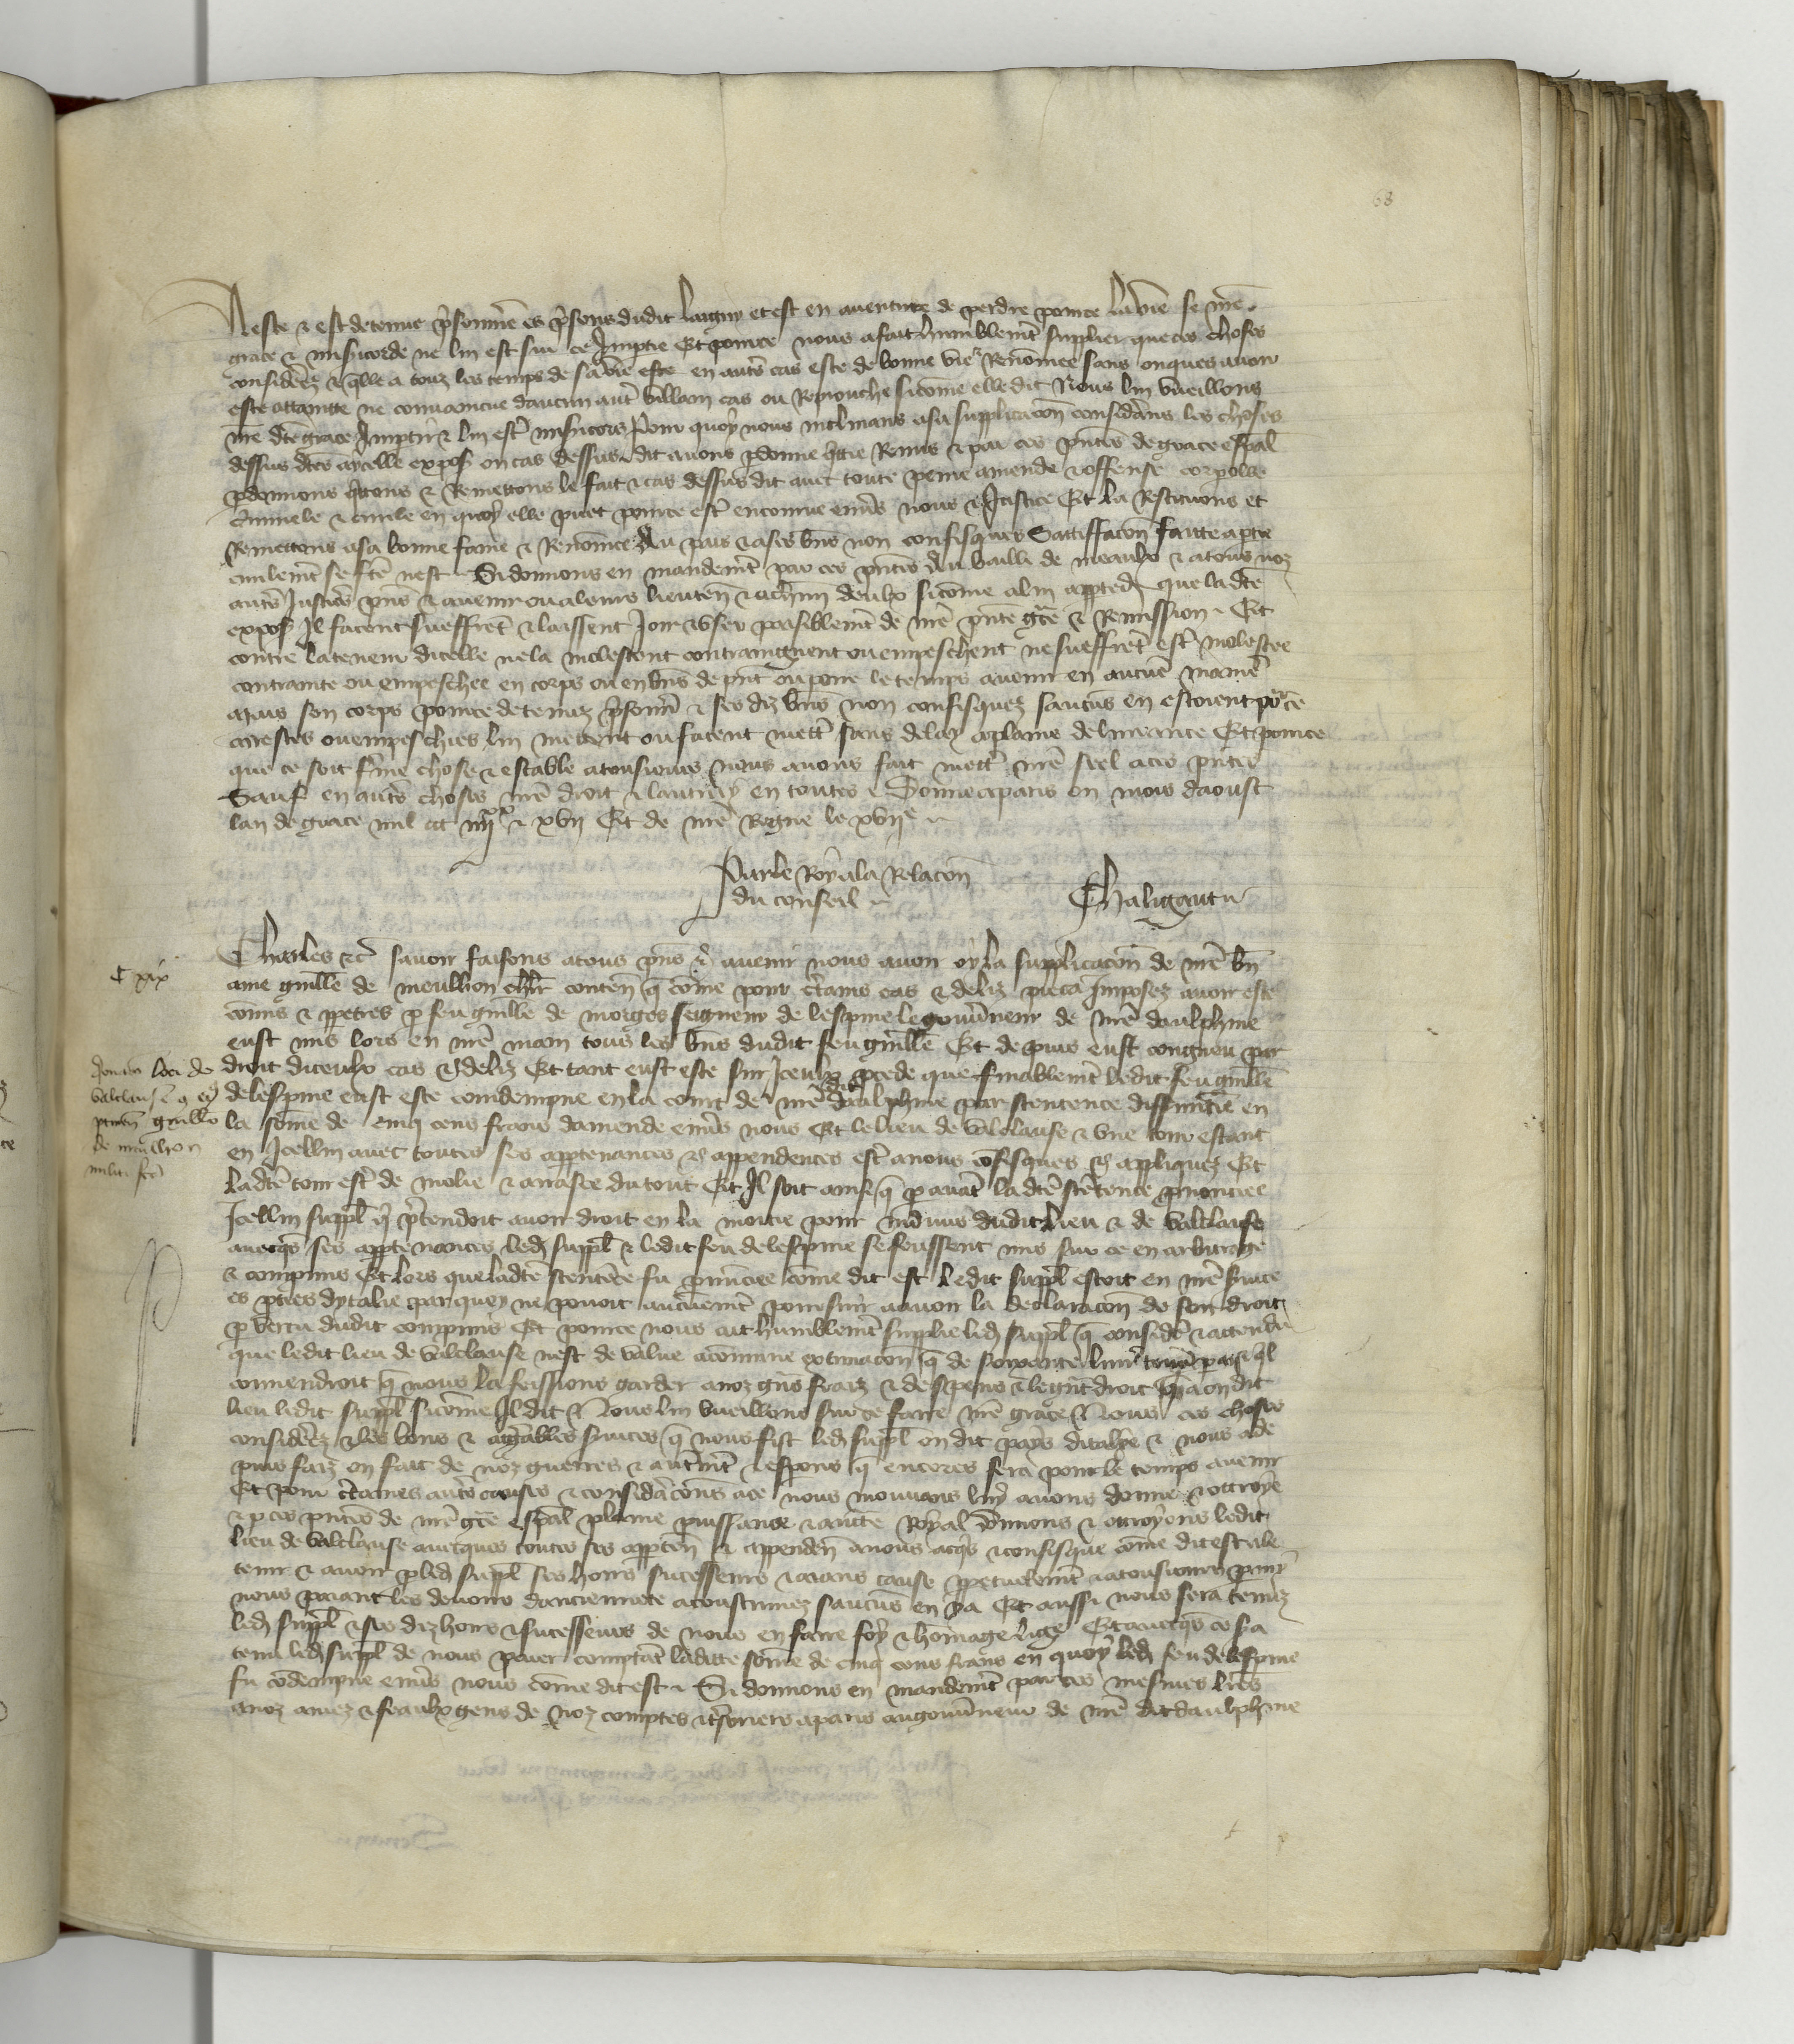 68
A este & est detenue prisonniere es prisons dudit Laigny et est en aventure de perdre pour ce la vie se nre
grace & misericorde ne lui est sur ce Impartie Et pour ce nous a fait humblement supplier que ces choses
considerez & quelle a touz les temps de sa vie este en autres cas este de bonne vie & Renommee sans onques avoir
este attainte ne convaincue daucun autre villain cas ou Reprouche si comme elle dit Nous lui vueillons
nre dte grace Impartir & lui estre misericors Pour quoy nous inclinans a sa supplicacion considerans les choses
dessus dtes a ycelle expos ou cas dessus dit avons pardonne quitte Remis & par ces presentes de grace especial
pardonnons quittons & Remettons le fait & cas dessus dit avec toute peine amende & offense corporelle
criminele & civile en quoy elle puet pour ce estre encourue envers nous & Justice Et la Restituons et
Remettons a sa bonne fame & Renommee au pais & a ses biens non confisquez Satisfaccion faitte a partie
civilement se fte nest Si donnons en mandement par ces presentes au bailli de meaulx & a tous noz
autres Justiciers presens & avenir ou a leurs lieuten & a chascun deulx si comme a lui appted que la dte
expos Il facent sueffrent & laissent Joir & user paisiblement de nre presente grace & Remission Et
contre la teneur dicelle ne la molestent contraingnent ou empeschent ne sueffrent estre molestee
contrainte ou empeschee en corps ou en biens de present ou pour le temps avenir en aucune maniere
mais son corps pour ce detenuz prisonnier & ses diz biens non confisquez saucuns en estoient pour ce
arrestes ou empeschies lui mettent ou facent mettre sans delay a plaine delivrance Et pour ce
que ce soit ferme chose & estable a tousiours nous avons fait mettre nre seel a ces presentes
Sauf en autres choses nre droit & lautruy en toutes Donne a paris ou mois daoust
lan de grace mil ccc iiijxx & xvij Et de nre Regne le xvije
Par le Roy a la Relacion
du conseil
Chaligaut
C xix
Charles &c savoir faisons a tous presens & avenir nous avoir oy la supplicacion de nre bien
ame guille de meullon chlr conten que comme pour certains cas & deliz pieca Imposez avoir este
commis & perpetres par feu guille de morges seigneur de lespine le gouverneur de nre daulphine
eust mis lors en nre main tous les biens dudit feu guille Et depuis eust congneu par
droit diceulx cas & deliz Et tant eust este sur Iceulx procede que finablement ledit feu guille
de lespine eust este condempne en la court de nre dit daulphine par sentence diffinitive en
la somme de cinq cens frans damende envers nous Et le lieu de valclause & une tour estant
en Icellui avec toutes ses appartenances & appendences estre a nous confisques & appliquez Et
ladte tour estre demolie & arrasee du tout Et Il soit ainsi que par avant ladte sentence prononciee
Icellui suppl qui pretendoit avoir droit en la moitie pour indivis dudit lieu & de valclause
avecques ses appartenances led suppl & ledit feu de lespine se feussent mis sur ce en arbitrage
& compromis Et lors que ladte sentence fu prononciee comme dit est Ledit suppl estoit en nre service
es parties dytalie par quoy ne povoit aucunement poursuir a avoir la declaracion de son droit
par vertu dudit compromis Et pour ce nous ait humblement supplie led suppl que considere & attendu
que ledit lieu de valclause nest de value a commune extimacion que de soixante livres tourn par an
convendroit que nous la feissions garder a noz grans fraiz & despens & legrant droit quil a on dit
lieu ledit suppl si comme Il dit Nous lui vueillons sur ce faire nre grace Nous ces choses
considerez & les bons & aggreables services que nous fist led suppl on dit pays ditalye & nous a de
puis faiz on fait de noz guerres & autrement & esperons que encores fera pour le temps avenir
Et pour certaines autres causes & consideracions a ce nous mouvans luy avons donne & ottroye
& par ces presentes de nre grace especial plaine puissance & auctte Royal donnons & ottroyons ledit
lieu de valclause avecques toutes ses apparten & appenden a nous acquis & confisque comme dit est a le
tenir & avoir par led suppl ses hoirs successeurs & aians cause perpetuelment & a tousiours parmi
nous paiant les devoirs danciennete acoustumez saucuns en ya Et aussi nous sera tenuz
led suppl & ses diz hoirs & successeurs de nous en faire foy & hommage lige Et avecques ce sera
tenu led suppl de nous paier comptant laditte somme de cinq cens frans en quoy led feu de lespine
fu condempne envers nous comme dit est Si donnons en mandement par ces mesmes lres
a noz amez & feaulx gens de noz comptes & tresoriers a paris au gouverneur de nre dit daulphine
Donum loci de
valclause
guillo
de meulhon
militi fcm